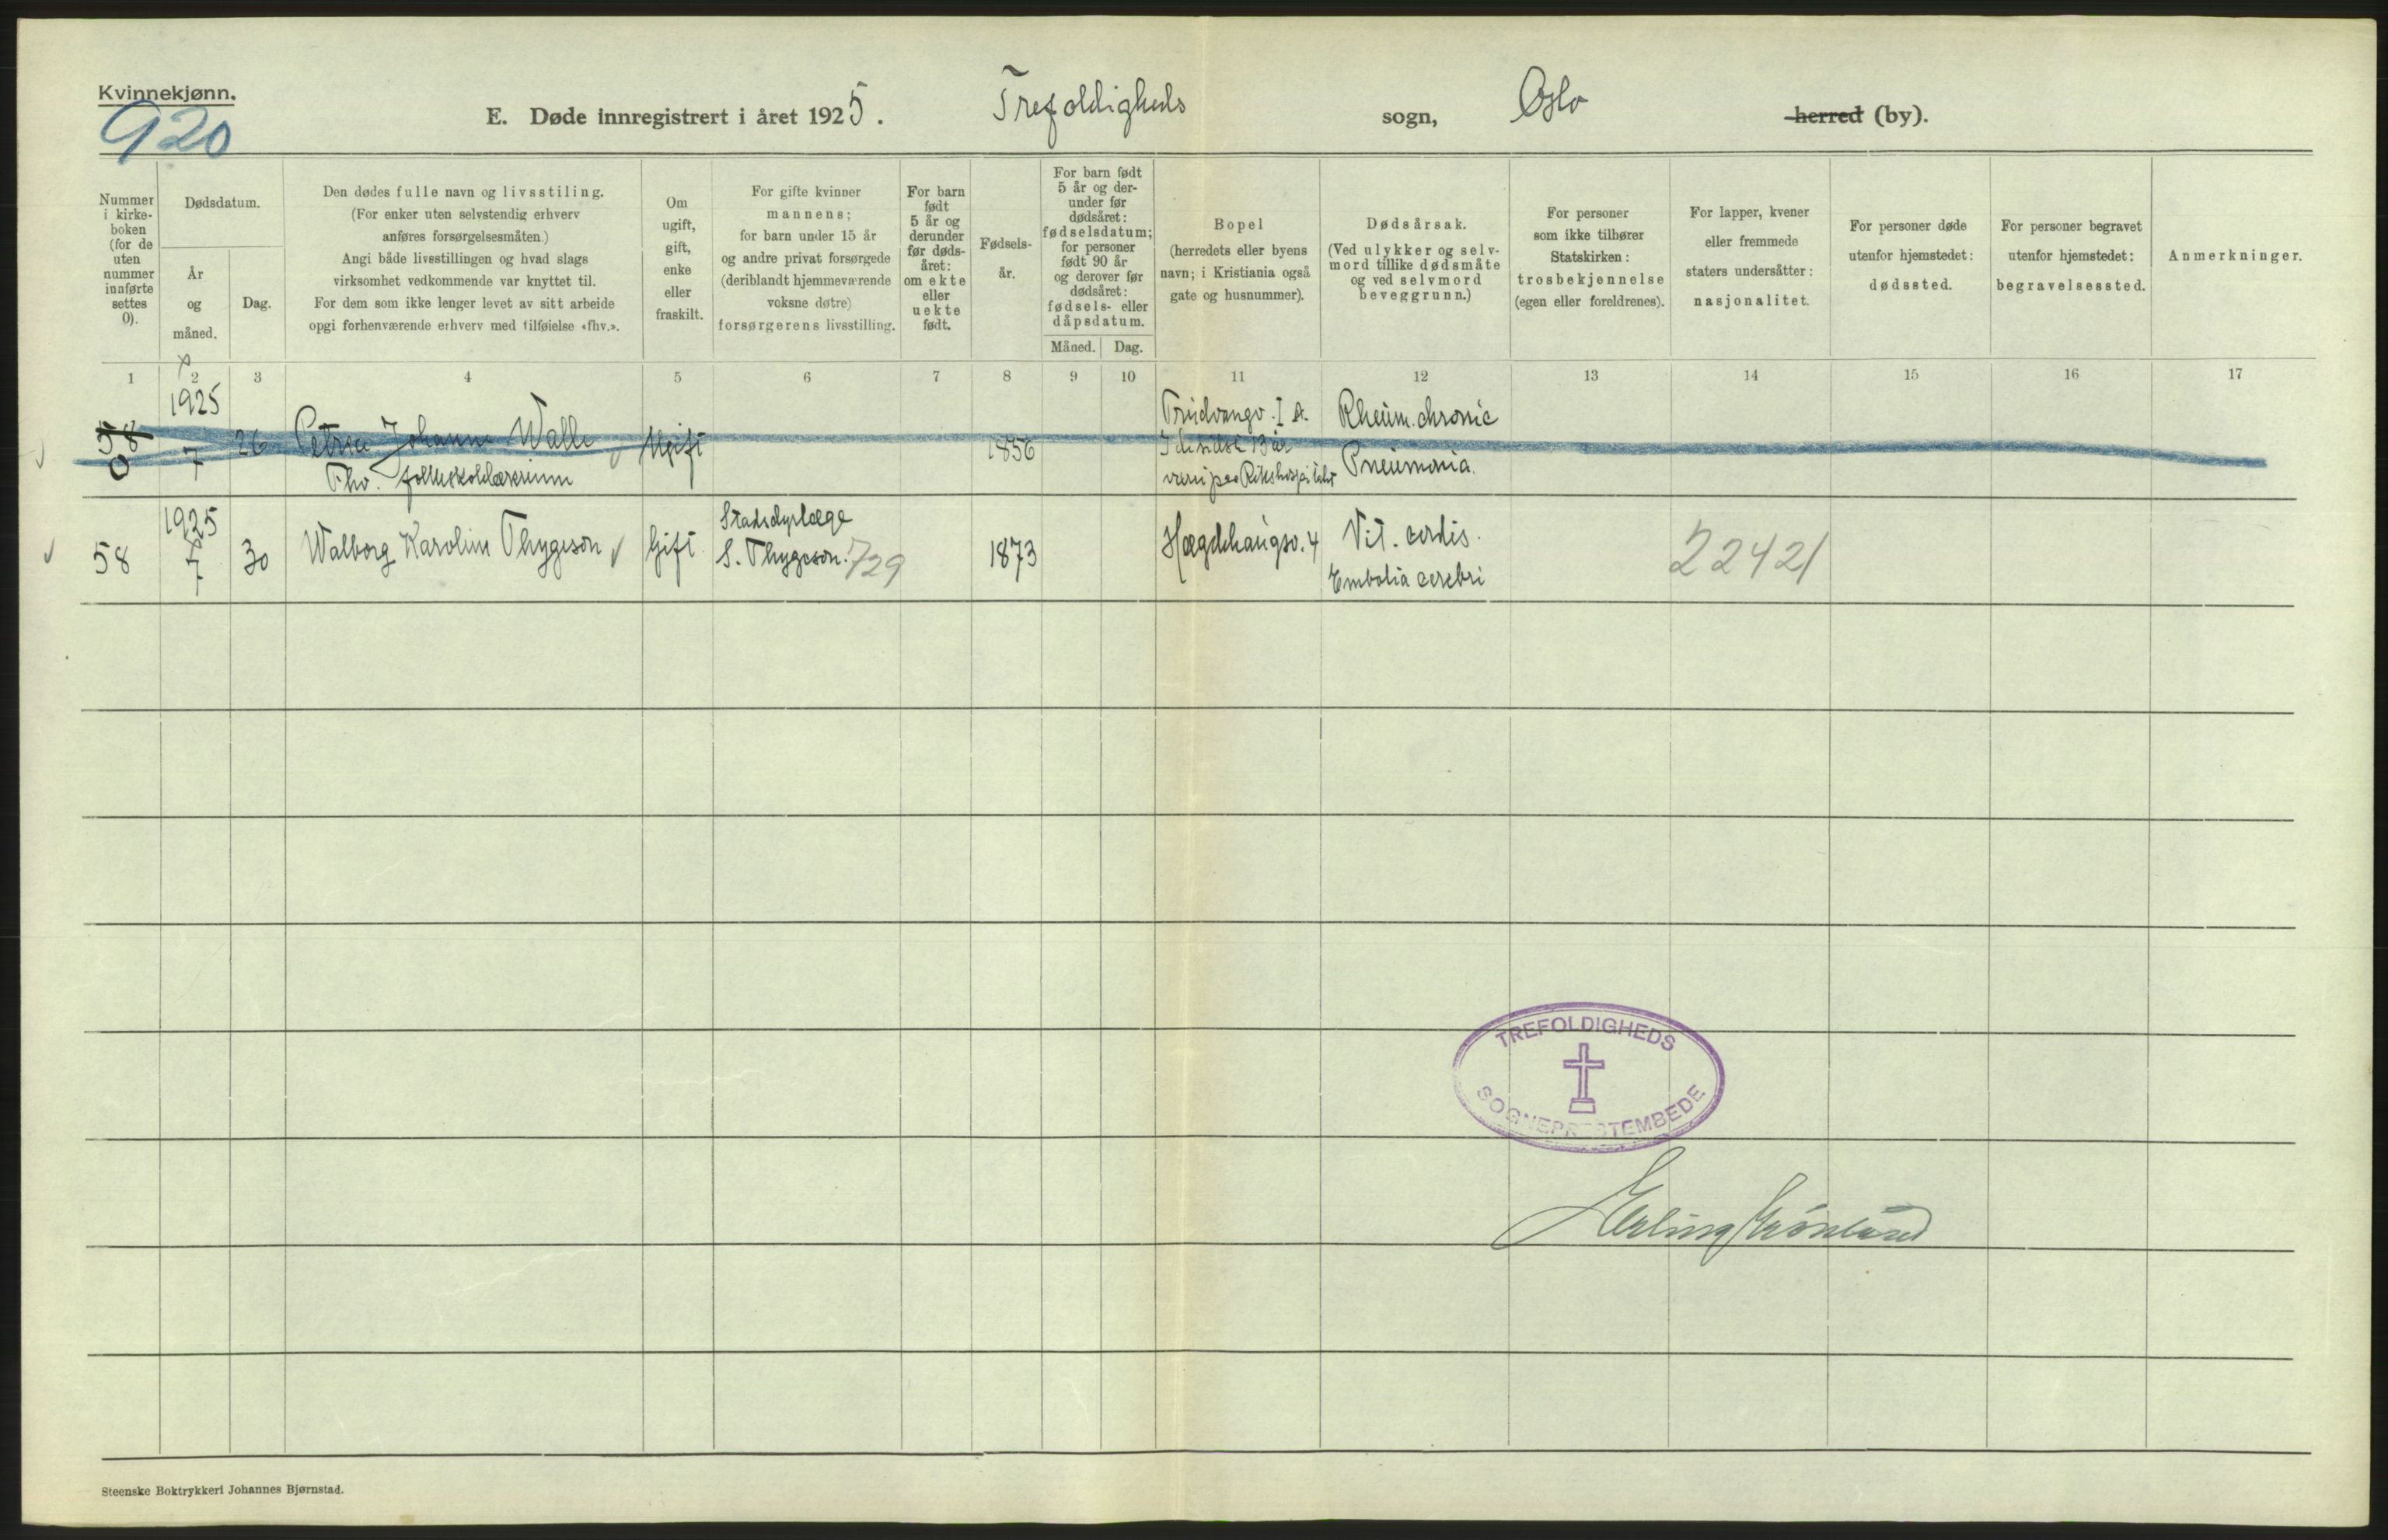 Kvinnekjønn.
920
E. Døde innregistrert i året 1925. Trefoldigheds sogn, Oslo herred (by).
Nummer i kirke- boken (for de uten nummer innførte settes 0).
Dødsdatum.
År og måned.
Dag.
Den dødes fulle navn og livsstiling.
(For enker uten selvstendig erhverv
anføres forsørgelsesmåten.)
Angi både livsstillingen og hvad slags
virksomhet vedkommende var knyttet til.
For dem som ikke lenger levet av sitt arbeide
opgi forhenværende erhverv med tilføielse «fhv.».
Om
ugift,
gift,
enke
eller
fraskilt.
For gifte kvinner
mannens;
for barn under 15 år
og andre privat forsørgede
(deriblandt hjemmeværende
voksne døtre)
forsørgerens livsstilling.
For barn
født
5 år og
derunder
før døds-
året:
om ekte
eller
uekte
født.
Fødsels-
år.
For barn født
5 år og der-
under før
dødsåret:
fødselsdatum;
for personer
født 90 år
og derover før
dødsåret:
fødsels- eller
dåpsdatum.
Måned. Dag.
Bopel
(herredets eller byens
navn; i Kristiania også
gate og husnummer).
Dødsårsak.
(Ved ulykker og selv-
mord tillike dødsmåte
og ved selvmord
beveggrunn.)
For personer
som ikke tilhører
Statskirken:
trosbekjennelse
(egen eller foreldrenes).
For lapper, kvener
eller fremmede
staters undersåtter:
nasjonalitet.
For personer døde
utenfor hjemstedet:
dødssted.
For personer begravet
utenfor hjemstedet:
begravelsessted.
Anmerkninger.
1 2 3 4 5 6 7 8 9 10 11 12 13 14 15 16 17
58
0
1925
7
26
Petra Johanne Walle
Fhv. folkeskolelærerinne
Ugift
1856
Trudvangv. I A.
13 år
Rikshospitalet
Rheum. chronic
Pneumonia.
58
1925
7
30
Walborg Karoline Thygeson
Gift
Stadsdyrlæge
S. Thygeson. 729
1873
Hægdehaugsv. 4
Vit. cordis.
Embolia cerebri
22421
TREFOLDIGHEDS
SOGNEPRESTEMBEDE
Erling Grönland
Steenske Boktrykkeri Johannes Bjørnstad.